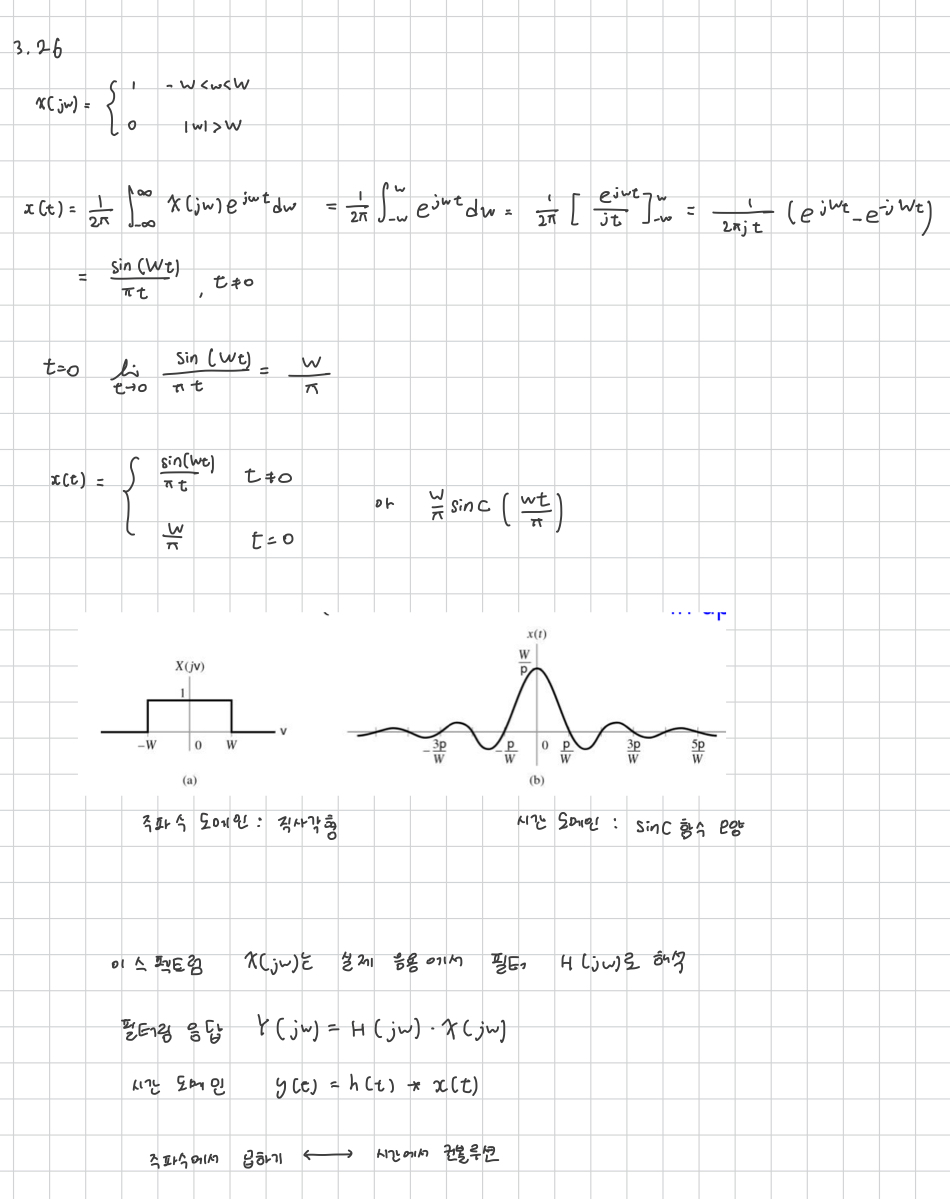 3.26
X(jw) = { 1 -W<w<W
0 |w|>W
x(t) = 1/2π ∫_{-∞}^{∞} X(jw)e^{jwt}dw = 1/2π ∫_{-W}^{W} e^{jwt}dw = 1/2π [e^{jwt}/jt]_{-W}^{W} = 1/2πjt (e^{jWt}-e^{-jWt})
= sin(Wt)/πt , t≠0
t=0 lim_{t→0} sin(Wt)/πt = W/π
x(t) = { sin(Wt)/πt t≠0
W/π t=0
or W/π sinc(Wt/π)
X(jv)
1
-W 0 W v
(a)
x(t)
W/p
-3p/W -p/W 0 p/W 3p/W 5p/W
(b)
주파수 도메인 : 직사각형
시간 도메인 : sinc 함수 모양
이 스펙트럼 X(jw)는 실제 응용에서 필터 H(jw)로 해석
필터링 응답 Y(jw) = H(jw) · X(jw)
시간 도메인 y(t) = h(t) * x(t)
주파수에서 곱하기 ↔ 시간에서 컨볼루션